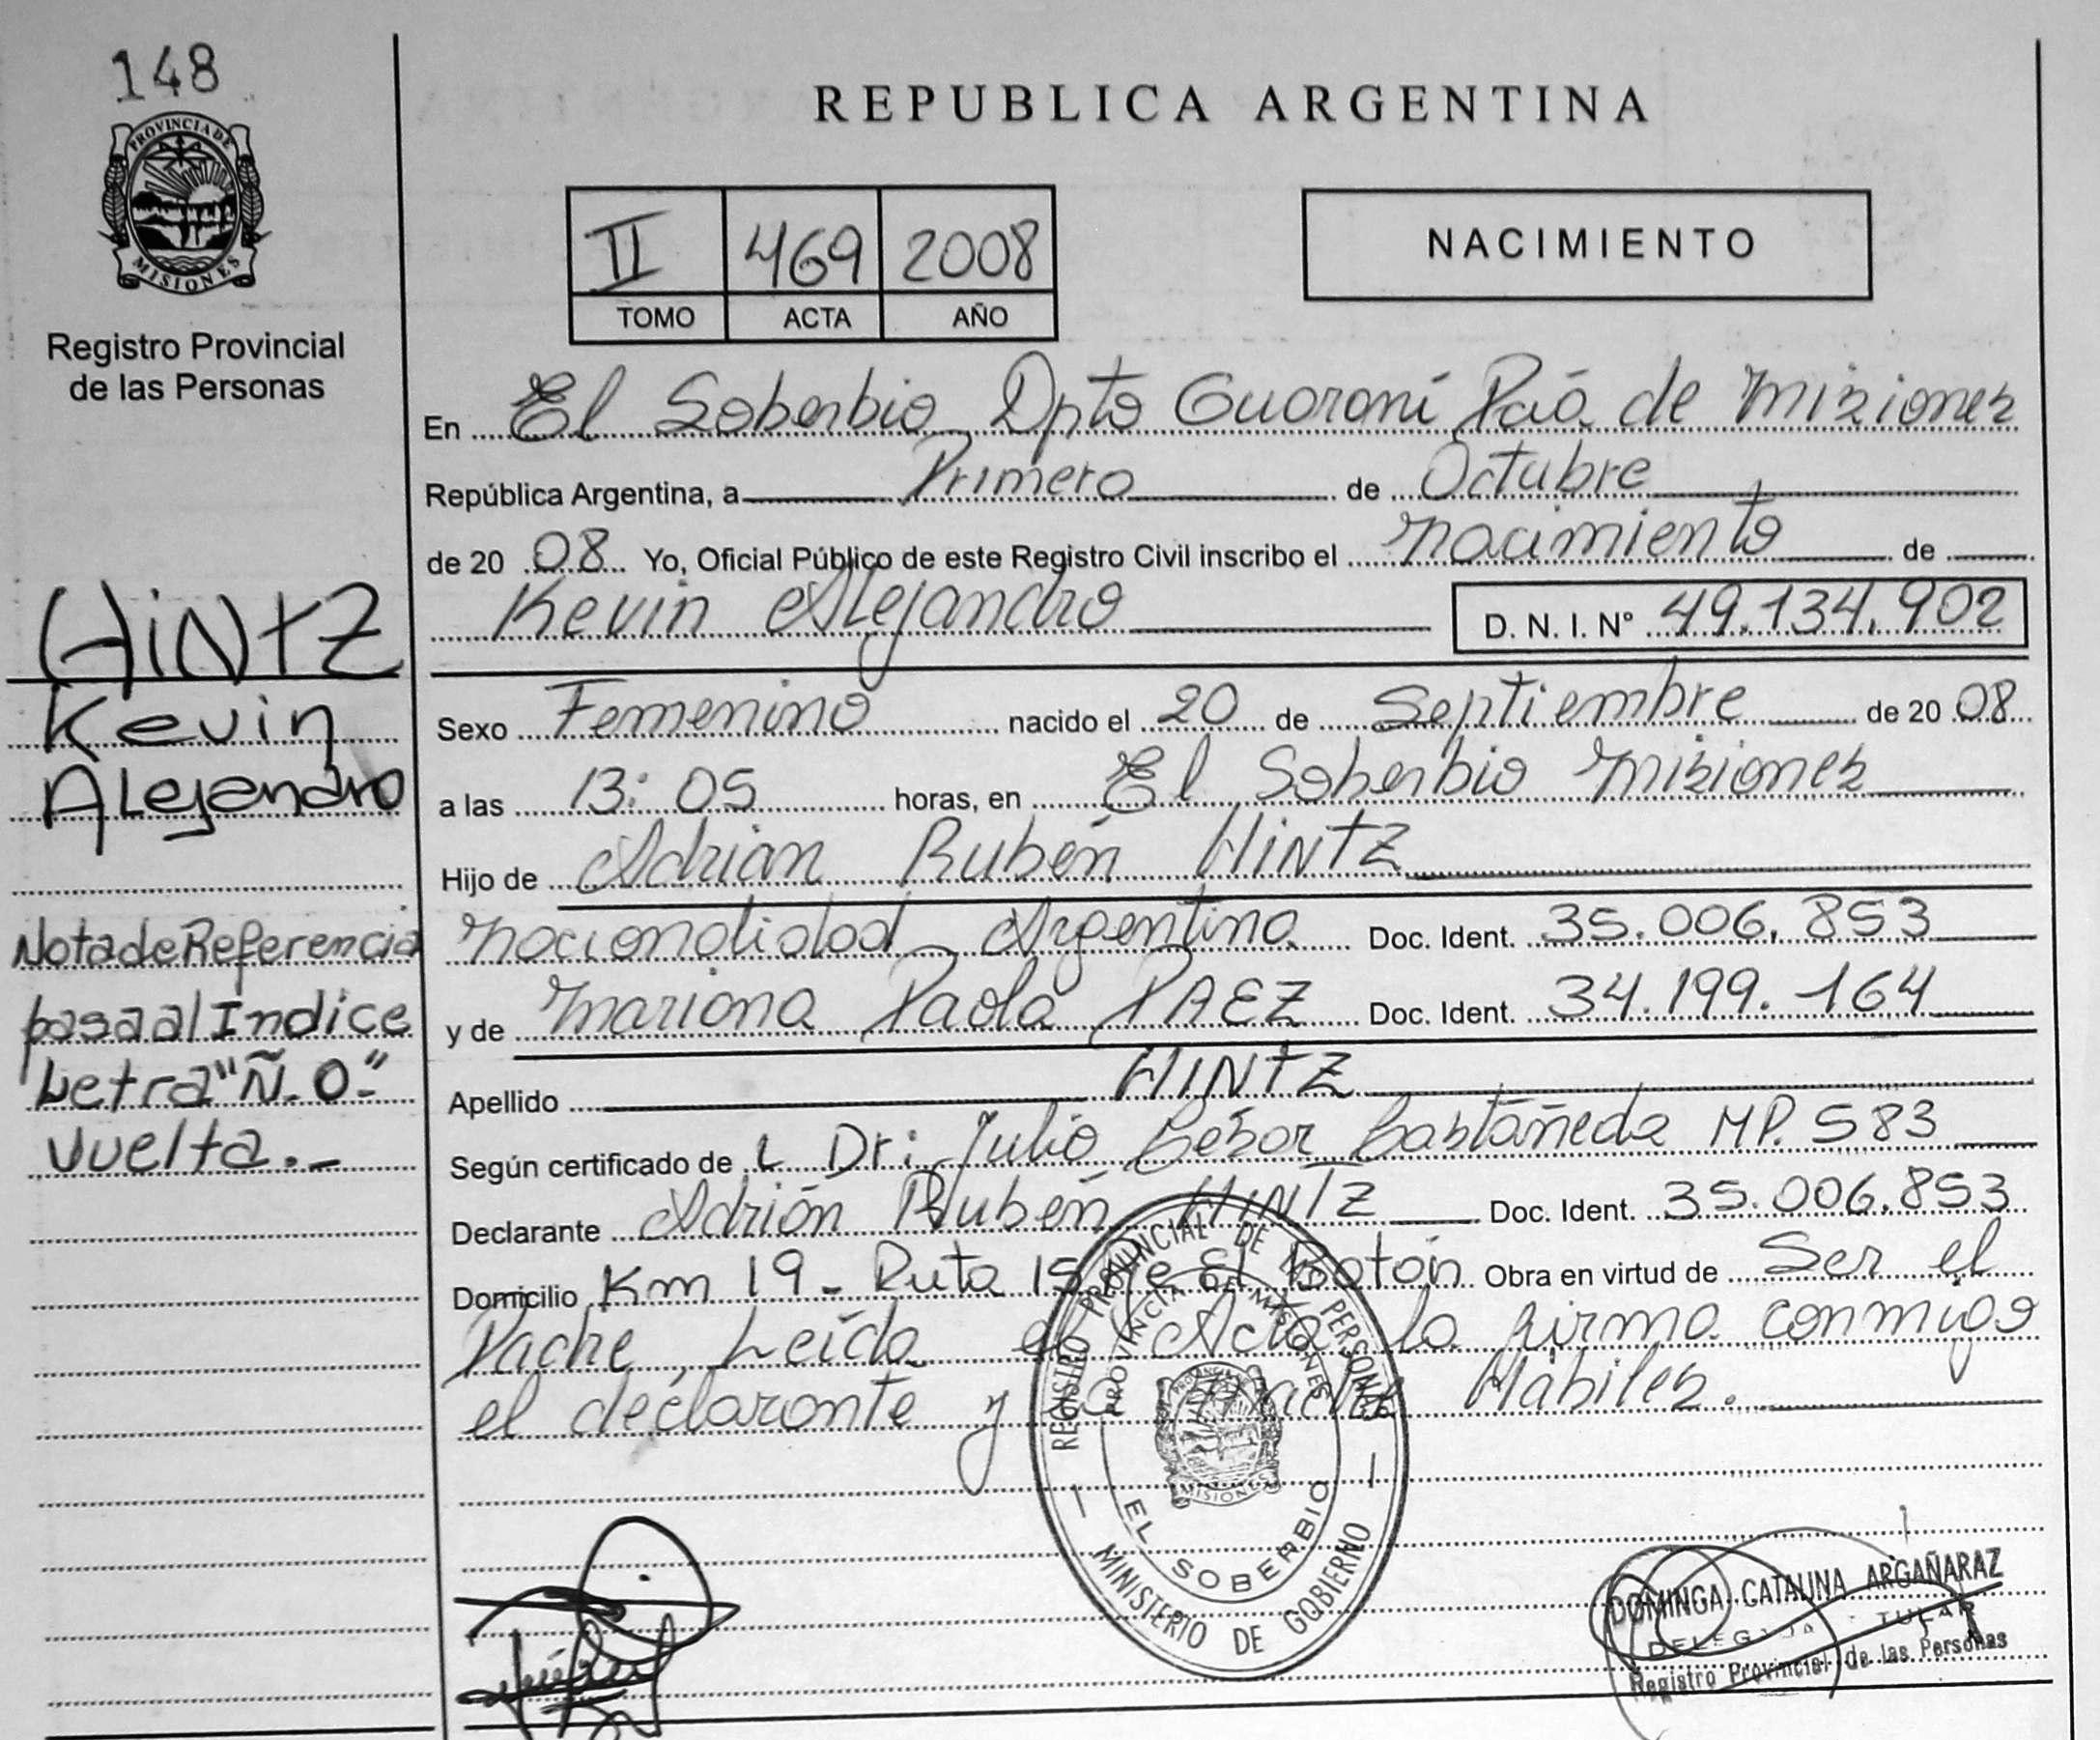 148
PROVINCIA DE
MISIONES
Registro Provincial
de las Personas
HINTZ
Kevin
Alejandro
Nota de Referencia
pasa al Indice
Letra "Ñ.O"-
Vuelta.-
REPUBLICA ARGENTINA
II 469 2008
TOMO ACTA AÑO
NACIMIENTO
En El Soberbio Dpto Guaraní Pcia de Misiones
República Argentina, a Primero de Octubre
de 20 08 Yo, Oficial Público de este Registro Civil inscribo el nacimiento de
Kevin Alejandro D. N. I. N° 49.134.902
Sexo Femenino nacido el 20 de Septiembre de 20 08
a las 13:05 horas, en El Soberbio Misiones
Hijo de Adrián Rubén HINTZ
nacionalidad Argentina Doc. Ident. 35.006.853
y de Mariana Paola PAEZ Doc. Ident. 34.199.164
Apellido HINTZ
Según certificado de L Dr: Julio César Castañeda MP. 583
Declarante Adrián Rubén HINTZ Doc. Ident. 35.006.853
Domicilio Km 19 - Ruta 15 El Botón Obra en virtud de Ser el
Padre, Leída el Acta la firma conmigo
el declarante y Hábiles.
REGISTRO PROVINCIAL DE LAS PERSONAS
PROVINCIA DE MISIONES
PROVINCIA DE
MISIONES
EL SOBERBIO
MINISTERIO DE GOBIERNO
DOMINGA CATALINA ARGAÑARAZ
DELEGADA TITULAR
Registro Provincial de las Personas